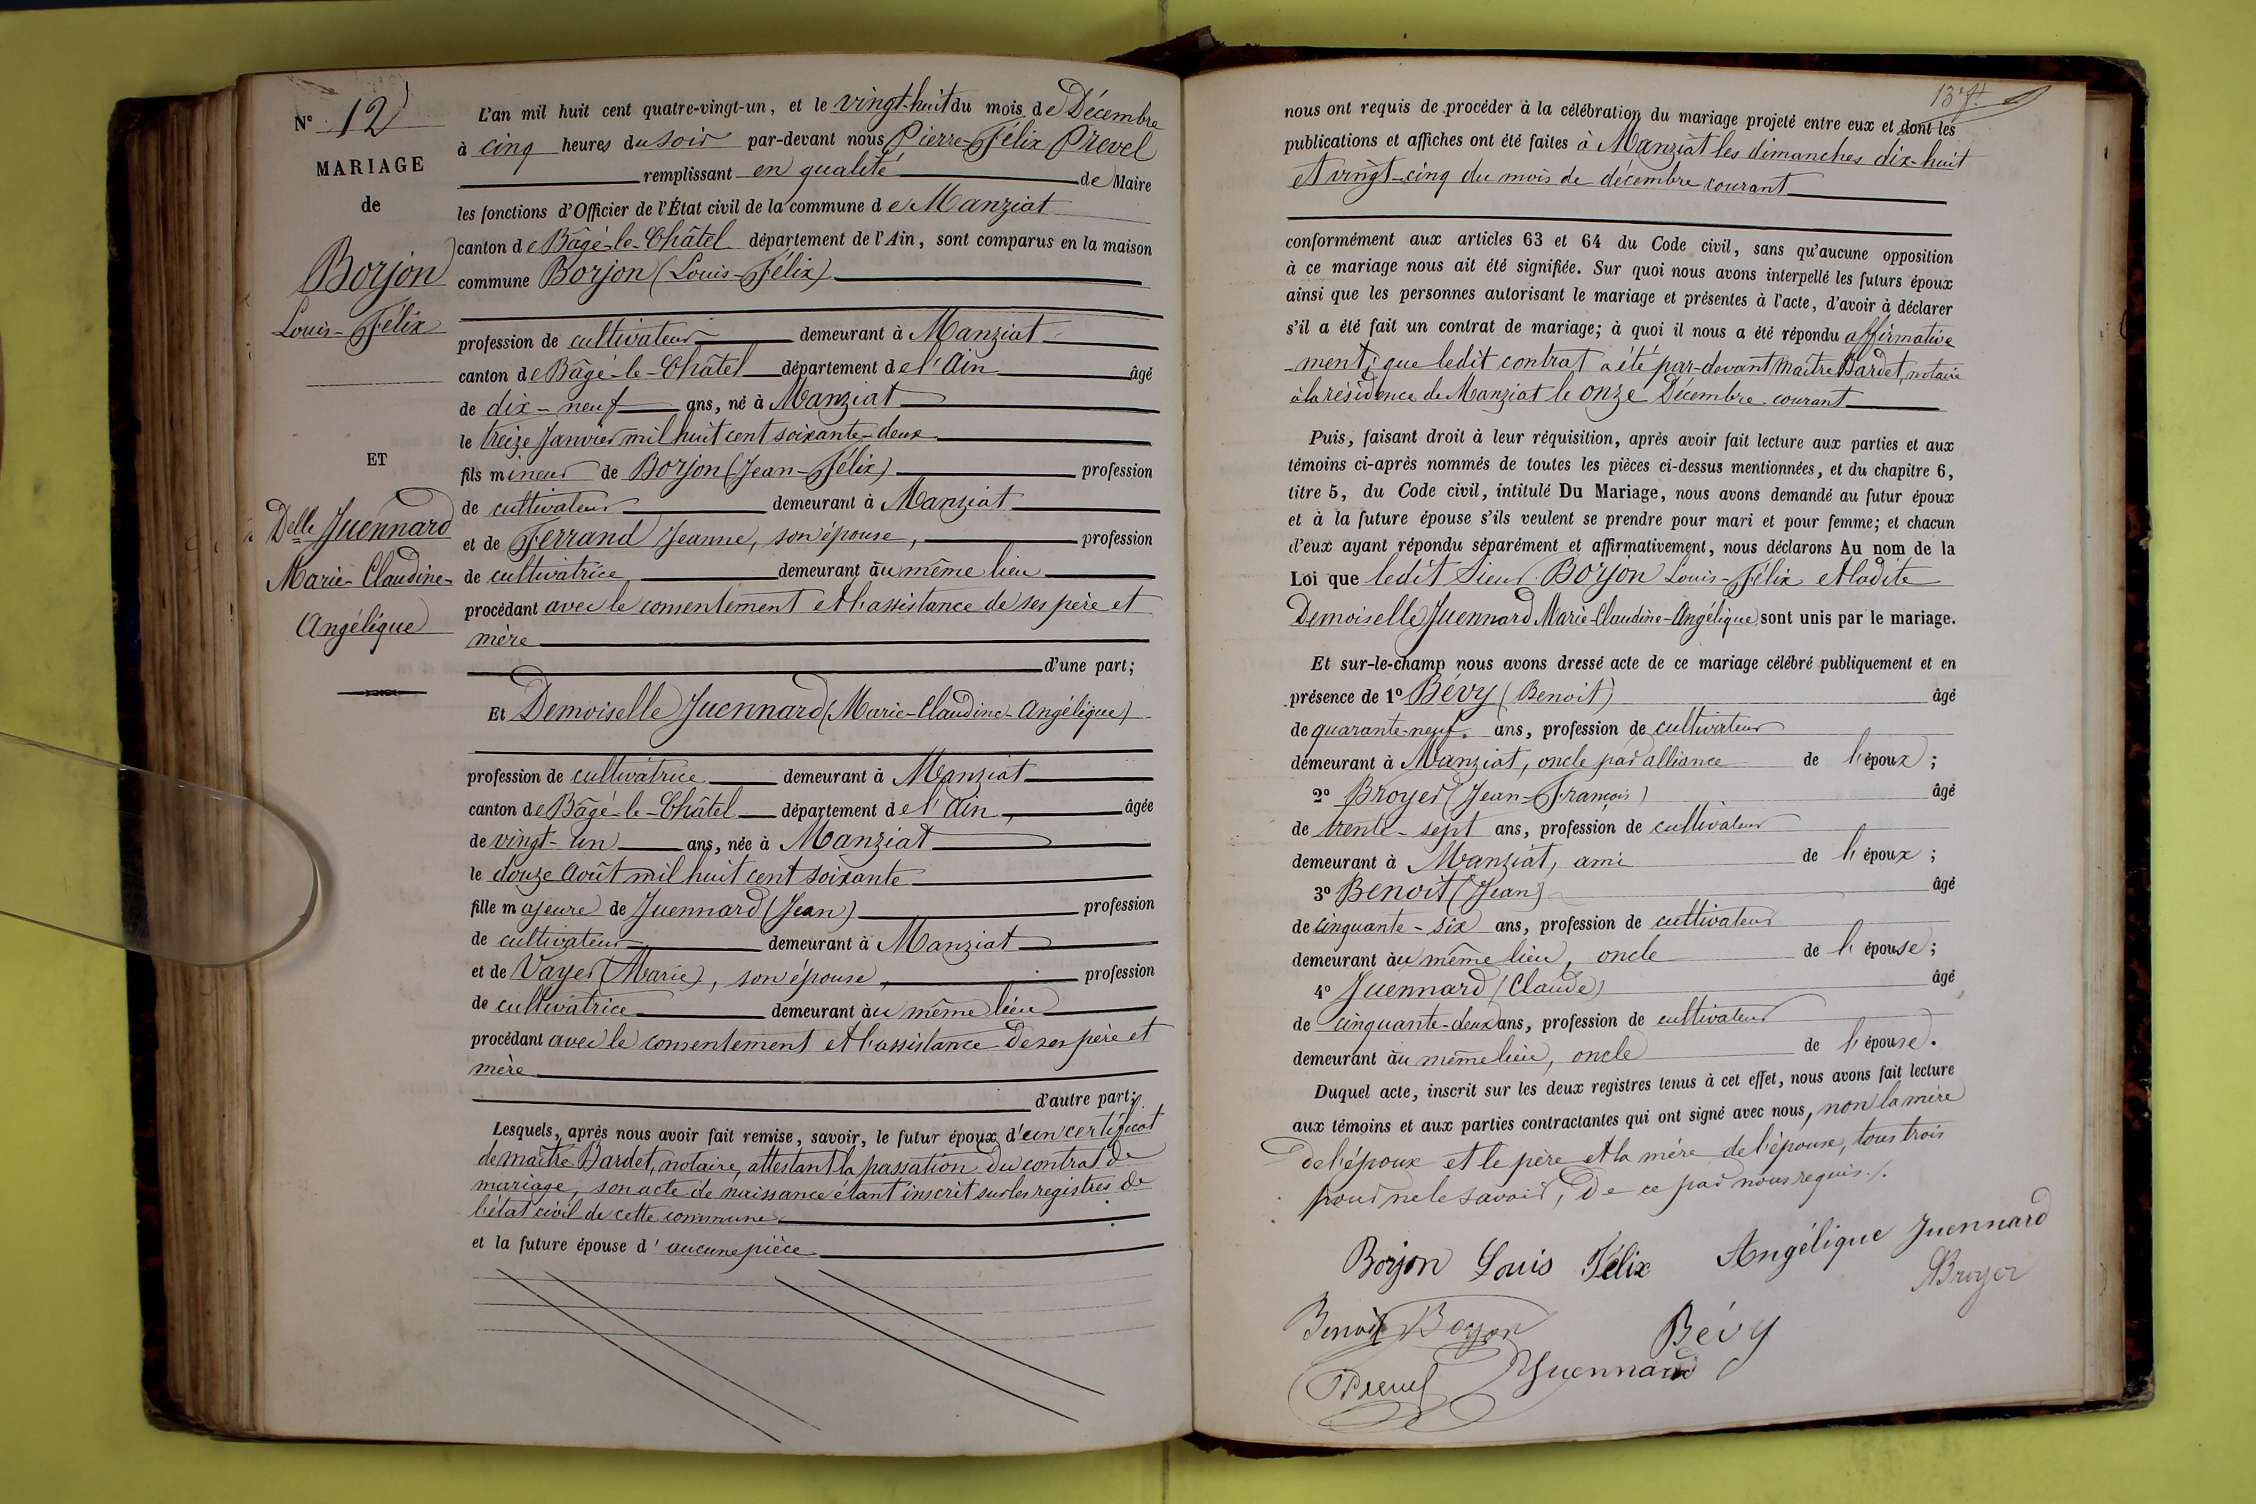 N° 12
MARIAGE
de
Borjon
Louis-Félix
ET
Delle Juennard
Marie-Claudine-
Angélique
L'an mil huit cent quatre-vingt-un, et le vingt-huit du mois de Décembre
à cinq heures du soir par-devant nous Pierre-Félix Prevel
remplissant en qualité de Maire
les fonctions d'Officier de l'État civil de la commune de Manziat
canton de Bâgé-le-Châtel département de l'Ain, sont comparus en la maison
commune Borjon (Louis-Félix)
profession de cultivateur demeurant à Manziat
canton de Bâgé-le-Châtel département de l'Ain âgé
de dix-neuf ans, né à Manziat
le treize Janvier mil huit cent soixante-deux
fils mineur de Borjon (Jean-Félix) profession
de cultivateur demeurant à Manziat
et de Ferrand Jeanne, son épouse, profession
de cultivatrice demeurant au même lieu
procédant avec le consentement et l'assistance de ses père et
mère
d'une part;
Et Demoiselle Juennard (Marie-Claudine-Angélique)
profession de cultivatrice demeurant à Manziat
canton de Bâgé-le-Châtel département de l'Ain, âgée
de vingt-un ans, née à Manziat
le douze Août mil huit cent soixante
fille majeure de Juennard (Jean) profession
de cultivateur demeurant à Manziat
et de Vayer (Marie), son épouse, profession
de cultivatrice demeurant au même lieu
procédant avec le consentement et l'assistance de ses père et
mère
d'autre part;
Lesquels, après nous avoir fait remise, savoir, le futur époux d'un certificat
de maître Bardet, notaire, attestant la passation du contrat de
mariage, son acte de naissance étant inscrit sur les registres de
l'état civil de cette commune
et la future épouse d'aucune pièce
nous ont requis de procéder à la célébration du mariage projeté entre eux et dont les
publications et affiches ont été faites à Manziat les dimanches dix-huit
et vingt-cinq du mois de décembre courant
conformément aux articles 63 et 64 du Code civil, sans qu'aucune opposition
à ce mariage nous ait été signifiée. Sur quoi nous avons interpellé les futurs époux
ainsi que les personnes autorisant le mariage et présentes à l'acte, d'avoir à déclarer
s'il a été fait un contrat de mariage; à quoi il nous a été répondu affirmative
-ment; que ledit contrat a été par-devant maître Bardet, notaire
à la résidence de Manziat le onze Décembre courant
Puis, faisant droit à leur réquisition, après avoir fait lecture aux parties et aux
témoins ci-après nommés de toutes les pièces ci-dessus mentionnées, et du chapitre 6,
titre 5, du Code civil, intitulé Du Mariage, nous avons demandé au futur époux
et à la future épouse s'ils veulent se prendre pour mari et pour femme; et chacun
d'eux ayant répondu séparément et affirmativement, nous déclarons Au nom de la
Loi que ledit Sieur Borjon Louis-Félix et ladite
Demoiselle Juennard Marie-Claudine-Angélique sont unis par le mariage.
Et sur-le-champ nous avons dressé acte de ce mariage célébré publiquement et en
présence de 1° Bévy (Benoit) âgé
de quarante-neuf ans, profession de cultivateur
demeurant à Manziat, oncle par alliance de l'époux;
2° Broyer (Jean-François) âgé
de trente-sept ans, profession de cultivateur
demeurant à Manziat, ami de l'époux;
3° Benoit (Jean) âgé
de cinquante-six ans, profession de cultivateur
demeurant au même lieu, oncle de l'épouse;
4° Juennard (Claude) âgé
de cinquante-deux ans, profession de cultivateur
demeurant au même lieu, oncle de l'épouse.
Duquel acte, inscrit sur les deux registres tenus à cet effet, nous avons fait lecture
aux témoins et aux parties contractantes qui ont signé avec nous, non la mère
de l'époux et le père et la mère de l'épouse, tous trois
pour ne le savoir, de ce par nous requis./.
Borjon Louis Félix Angélique Juennard
Broyer
Benoit Borjon Bévy
Prevel Juennard